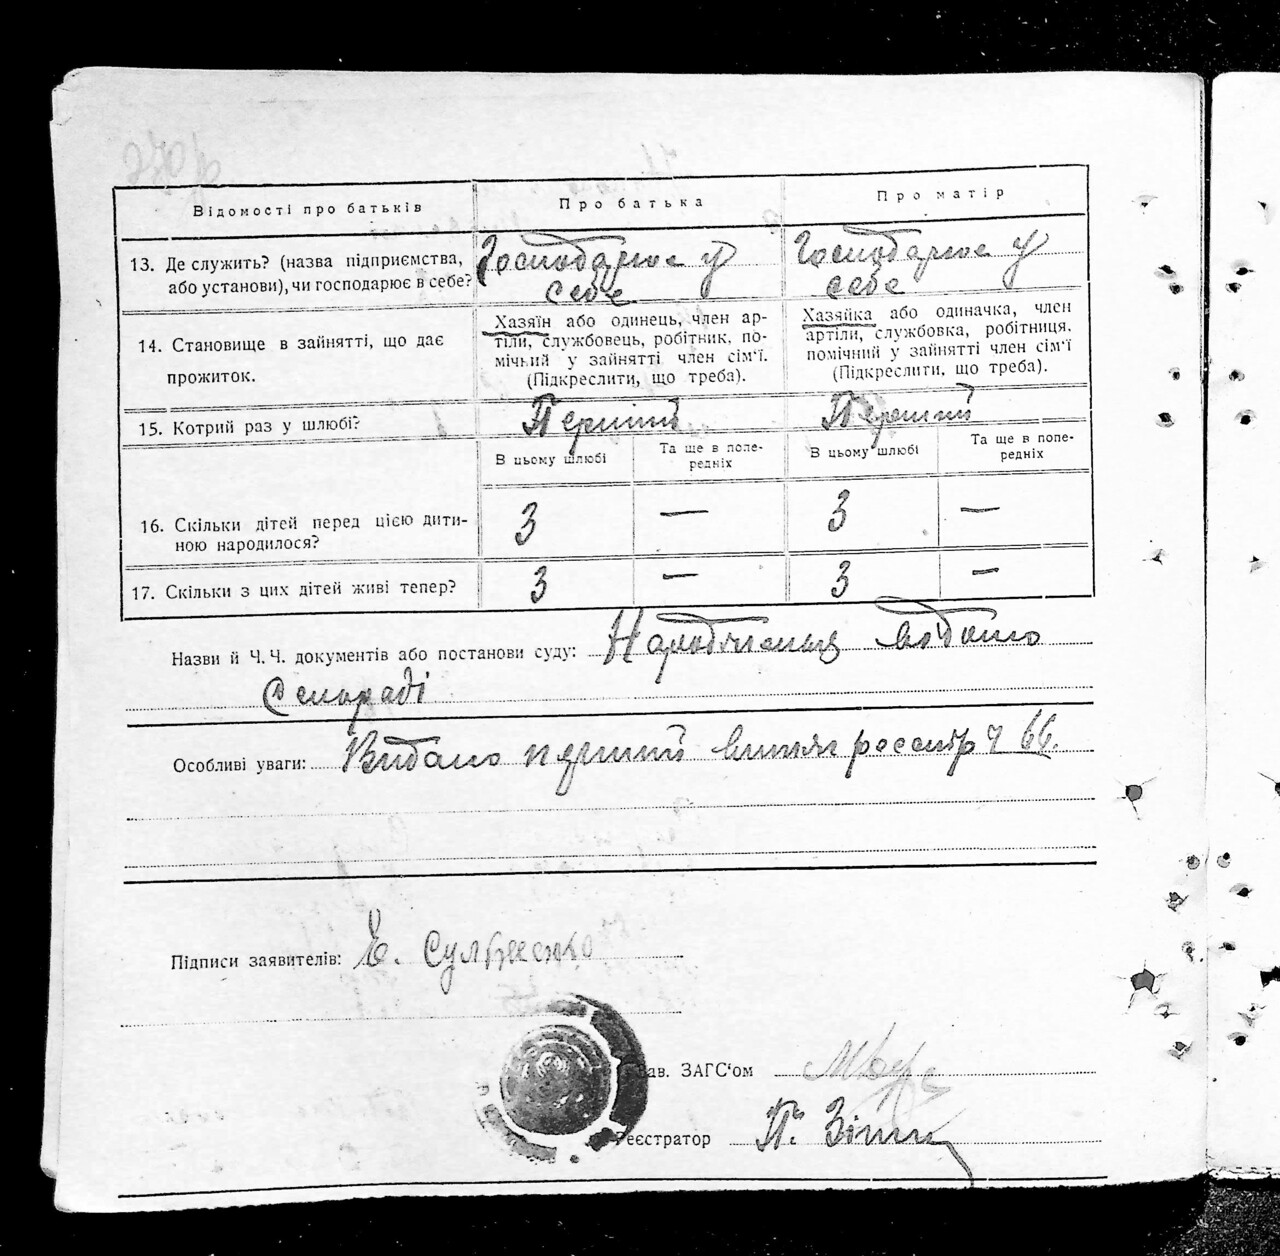 Відомості про батьків Про батька Про матір
13. Де служить? (назва підприємства, або установи), чи господарює в себе? Господарює у себе Господарює у себе
14. Становище в зайнятті, що дає прожиток.
Хазяїн або одинець, член ар-
тіли, службовець, робітник, по-
мічний у зайнятті член сім'ї.
(Підкреслити, що треба).
Хазяйка або одиначка, член
артіли, службовка, робітниця,
помічний у зайнятті член сім'ї
(Підкреслити, що треба).
15. Котрий раз у шлюбі? Перший Перший
В цьому шлюбі Та ще в попе-
редніх В цьому шлюбі Та ще в попе-
редніх
16. Скільки дітей перед цією дити-
ною народилося? 3 — 3 —
17. Скільки з цих дітей живі тепер? 3 — 3 —
Назви й Ч. Ч. документів або постанови суду: відомо
Сельраді
Особливі уваги: Видано перший 66.
Підписи заявителів: Е.
Зав. ЗАГС'ом
Реєстратор П.